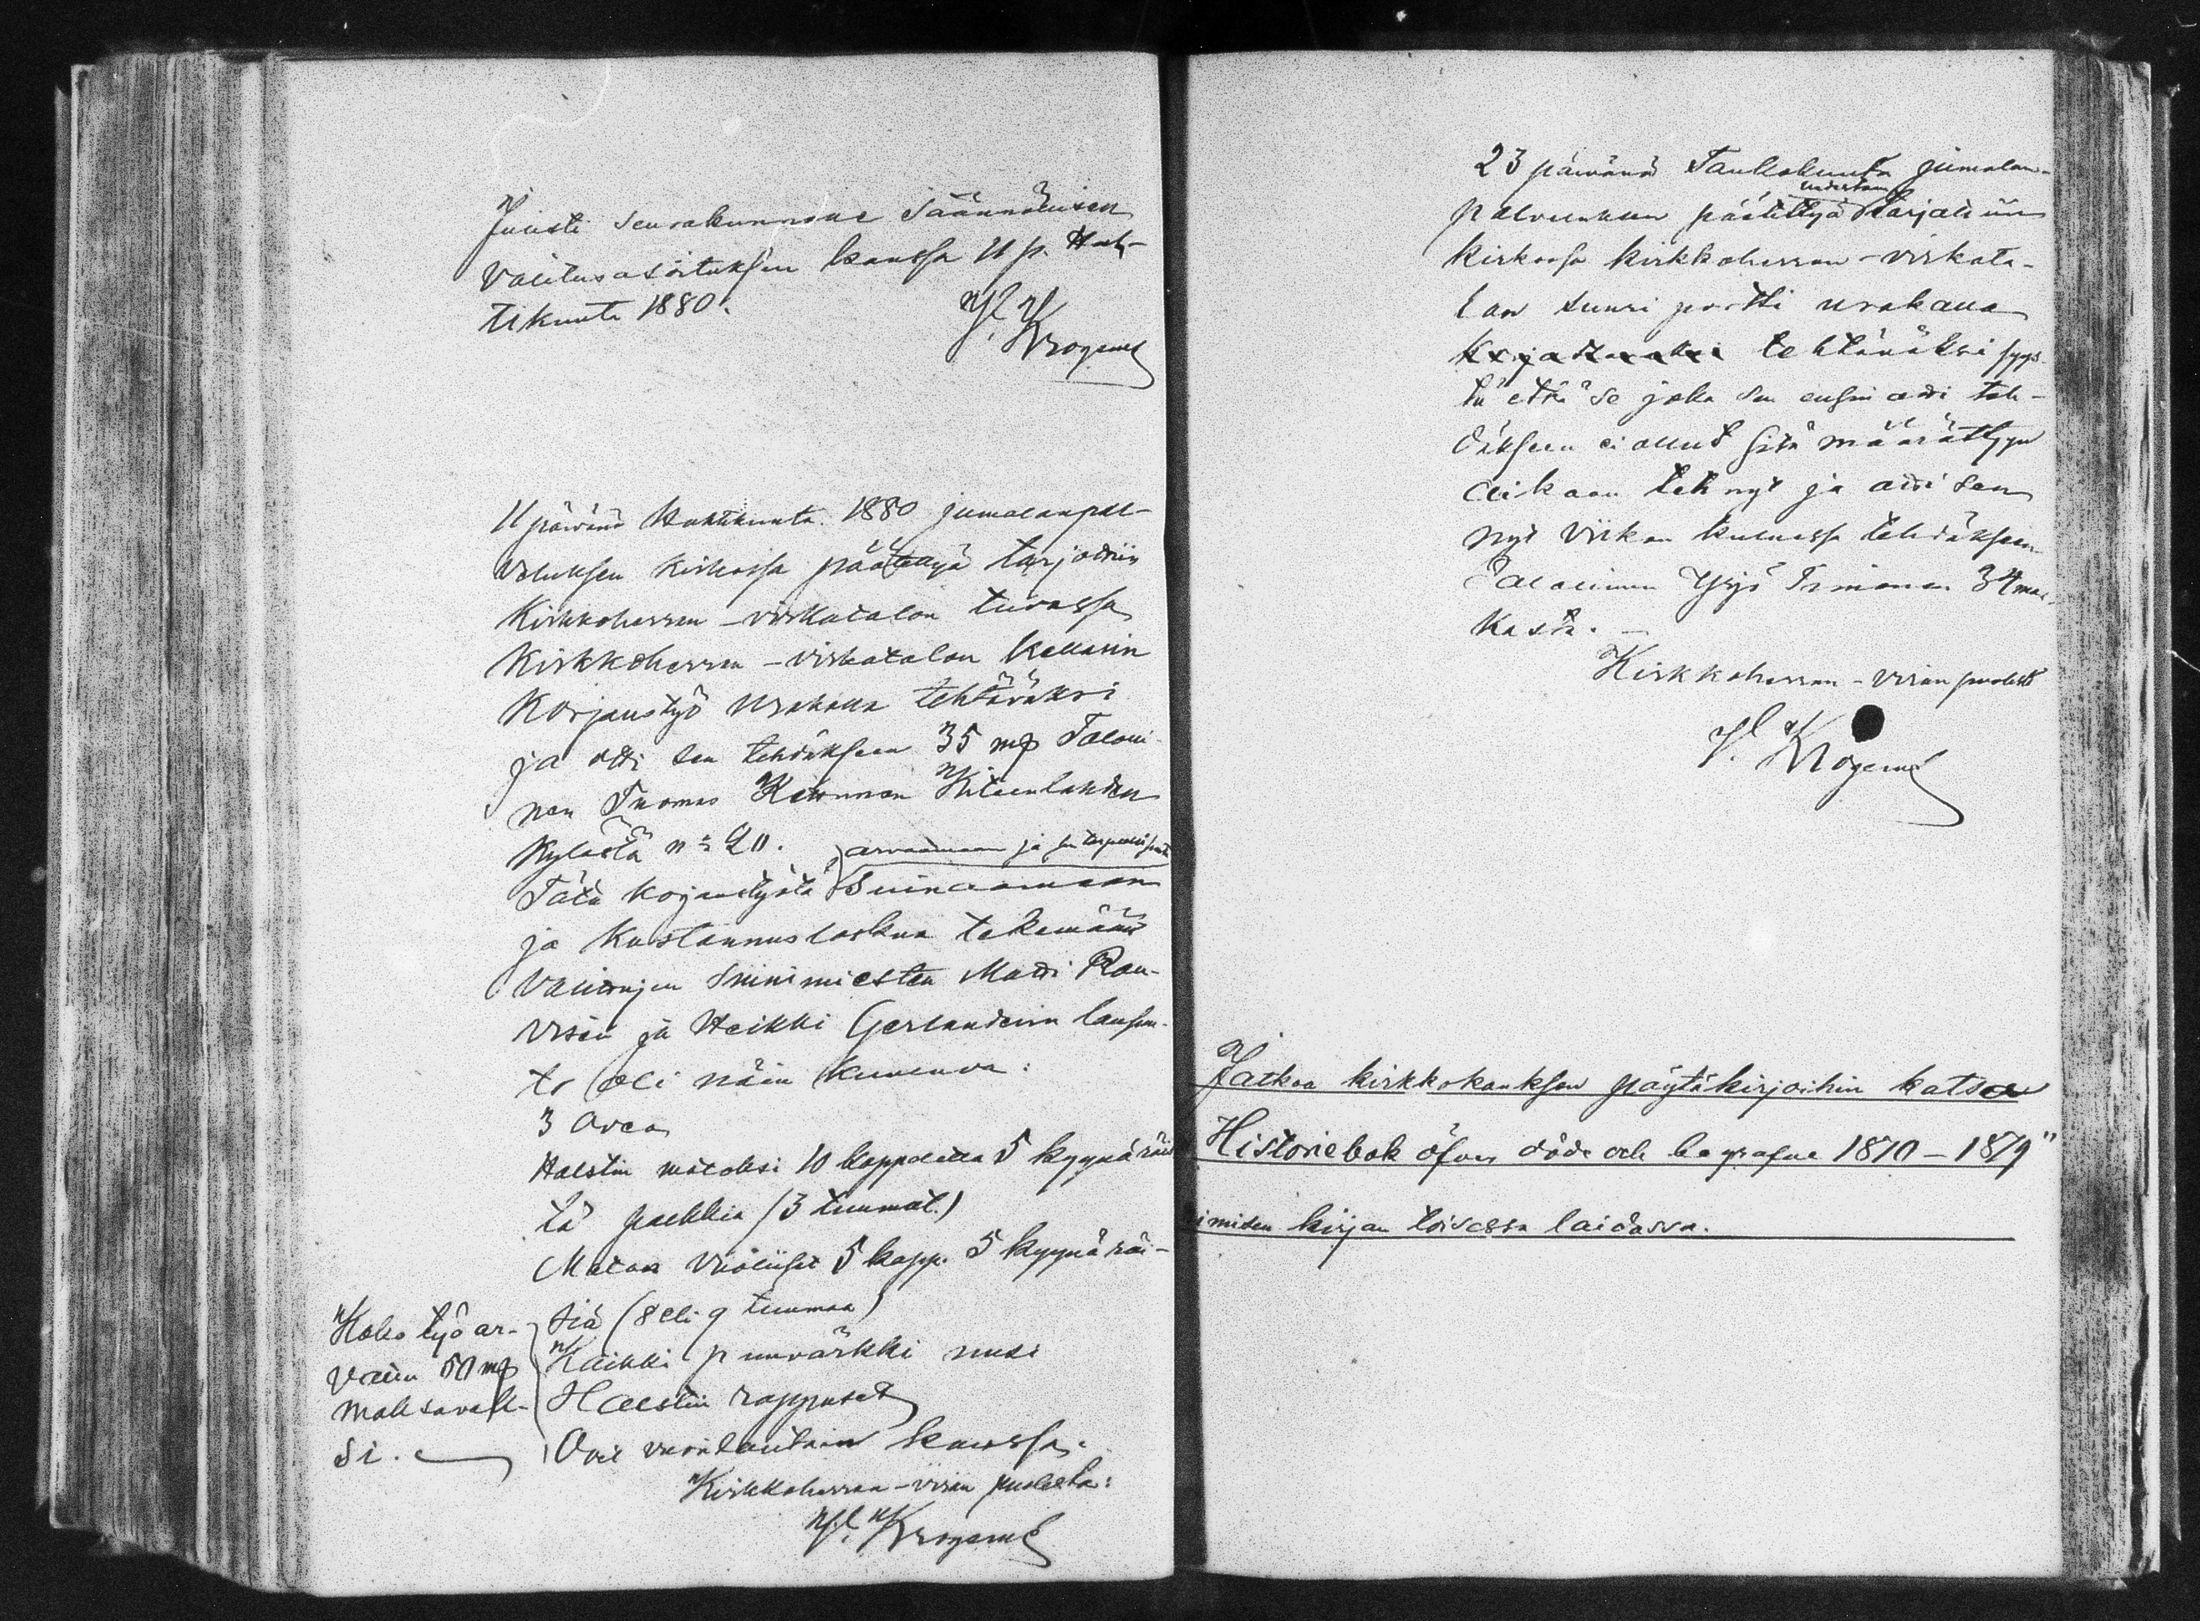 Juusti seurakunnane säännöllisen
valitusosoituksen kanssa 11 p. Huh-
tikuuta 1880.
Hl. Krogerus
11 päivänä Huhtikuuta 1880 jumalanpal-
veluksen kirkossa päätettyä tarjottiin
Kirkkoherran-virkatalon tuvassa
Kirkkoherran-virkatalon kellarin
Korjaustyö urakalla tehtäväksi
ja otti sen tehdäksen 35 mp Taloni-
nen Tuomas Kiteenlahden
kylästä n:o 20. arvaamaan ja
Tätä korjaustyötä Suinaamaan
ja Kustannuslaskua tekemään
Valittujen Suinimiesten Matti Rau-
visen ja Heikki Gerlanderin lausun-
to oli näin kuuluva:
3 Ovea
Halstin matoksi 10 kappaletta 5 kyynäräis-
tä palkkia (3 tuumat.)
Matan vuoliiset 5 kapp. 5 kyynäräi-
siä (8 eli 9 tuumaa)
Kaikki puuvärkki uusi
Halstin rappuset
Ovet vuorilautain kanssa.
Koko työ ar-
vattiin 50 mp
maksavak-
si.
Kirkkoherran-viran puolesta:
Hl. Krogerus
23 päivänä Toukokuuta jumalan-
palveluksen päätettyä tarjottiin
kirkossa kirkkoherran-virkata-
lon suuri portti urakalla
tehtäväksi syys-
tä että se joka sen ensin otti teh-
däkseen ei ollut sitä määrättyyn
aikaan tehnyt ja otti sen
nyt viikon kuluessa tehdäkseen
Talollinen Yrjö Timonen 34 mar-
kasta.
Kirkkoherran-viran puolesta
Hl. Krogerus
Jatkoa kirkkokouksen pöytäkirjoihin katso
Historiebok öfver döde och begrafne 1870–1879"
nimisen kirjan toisessa laidassa.